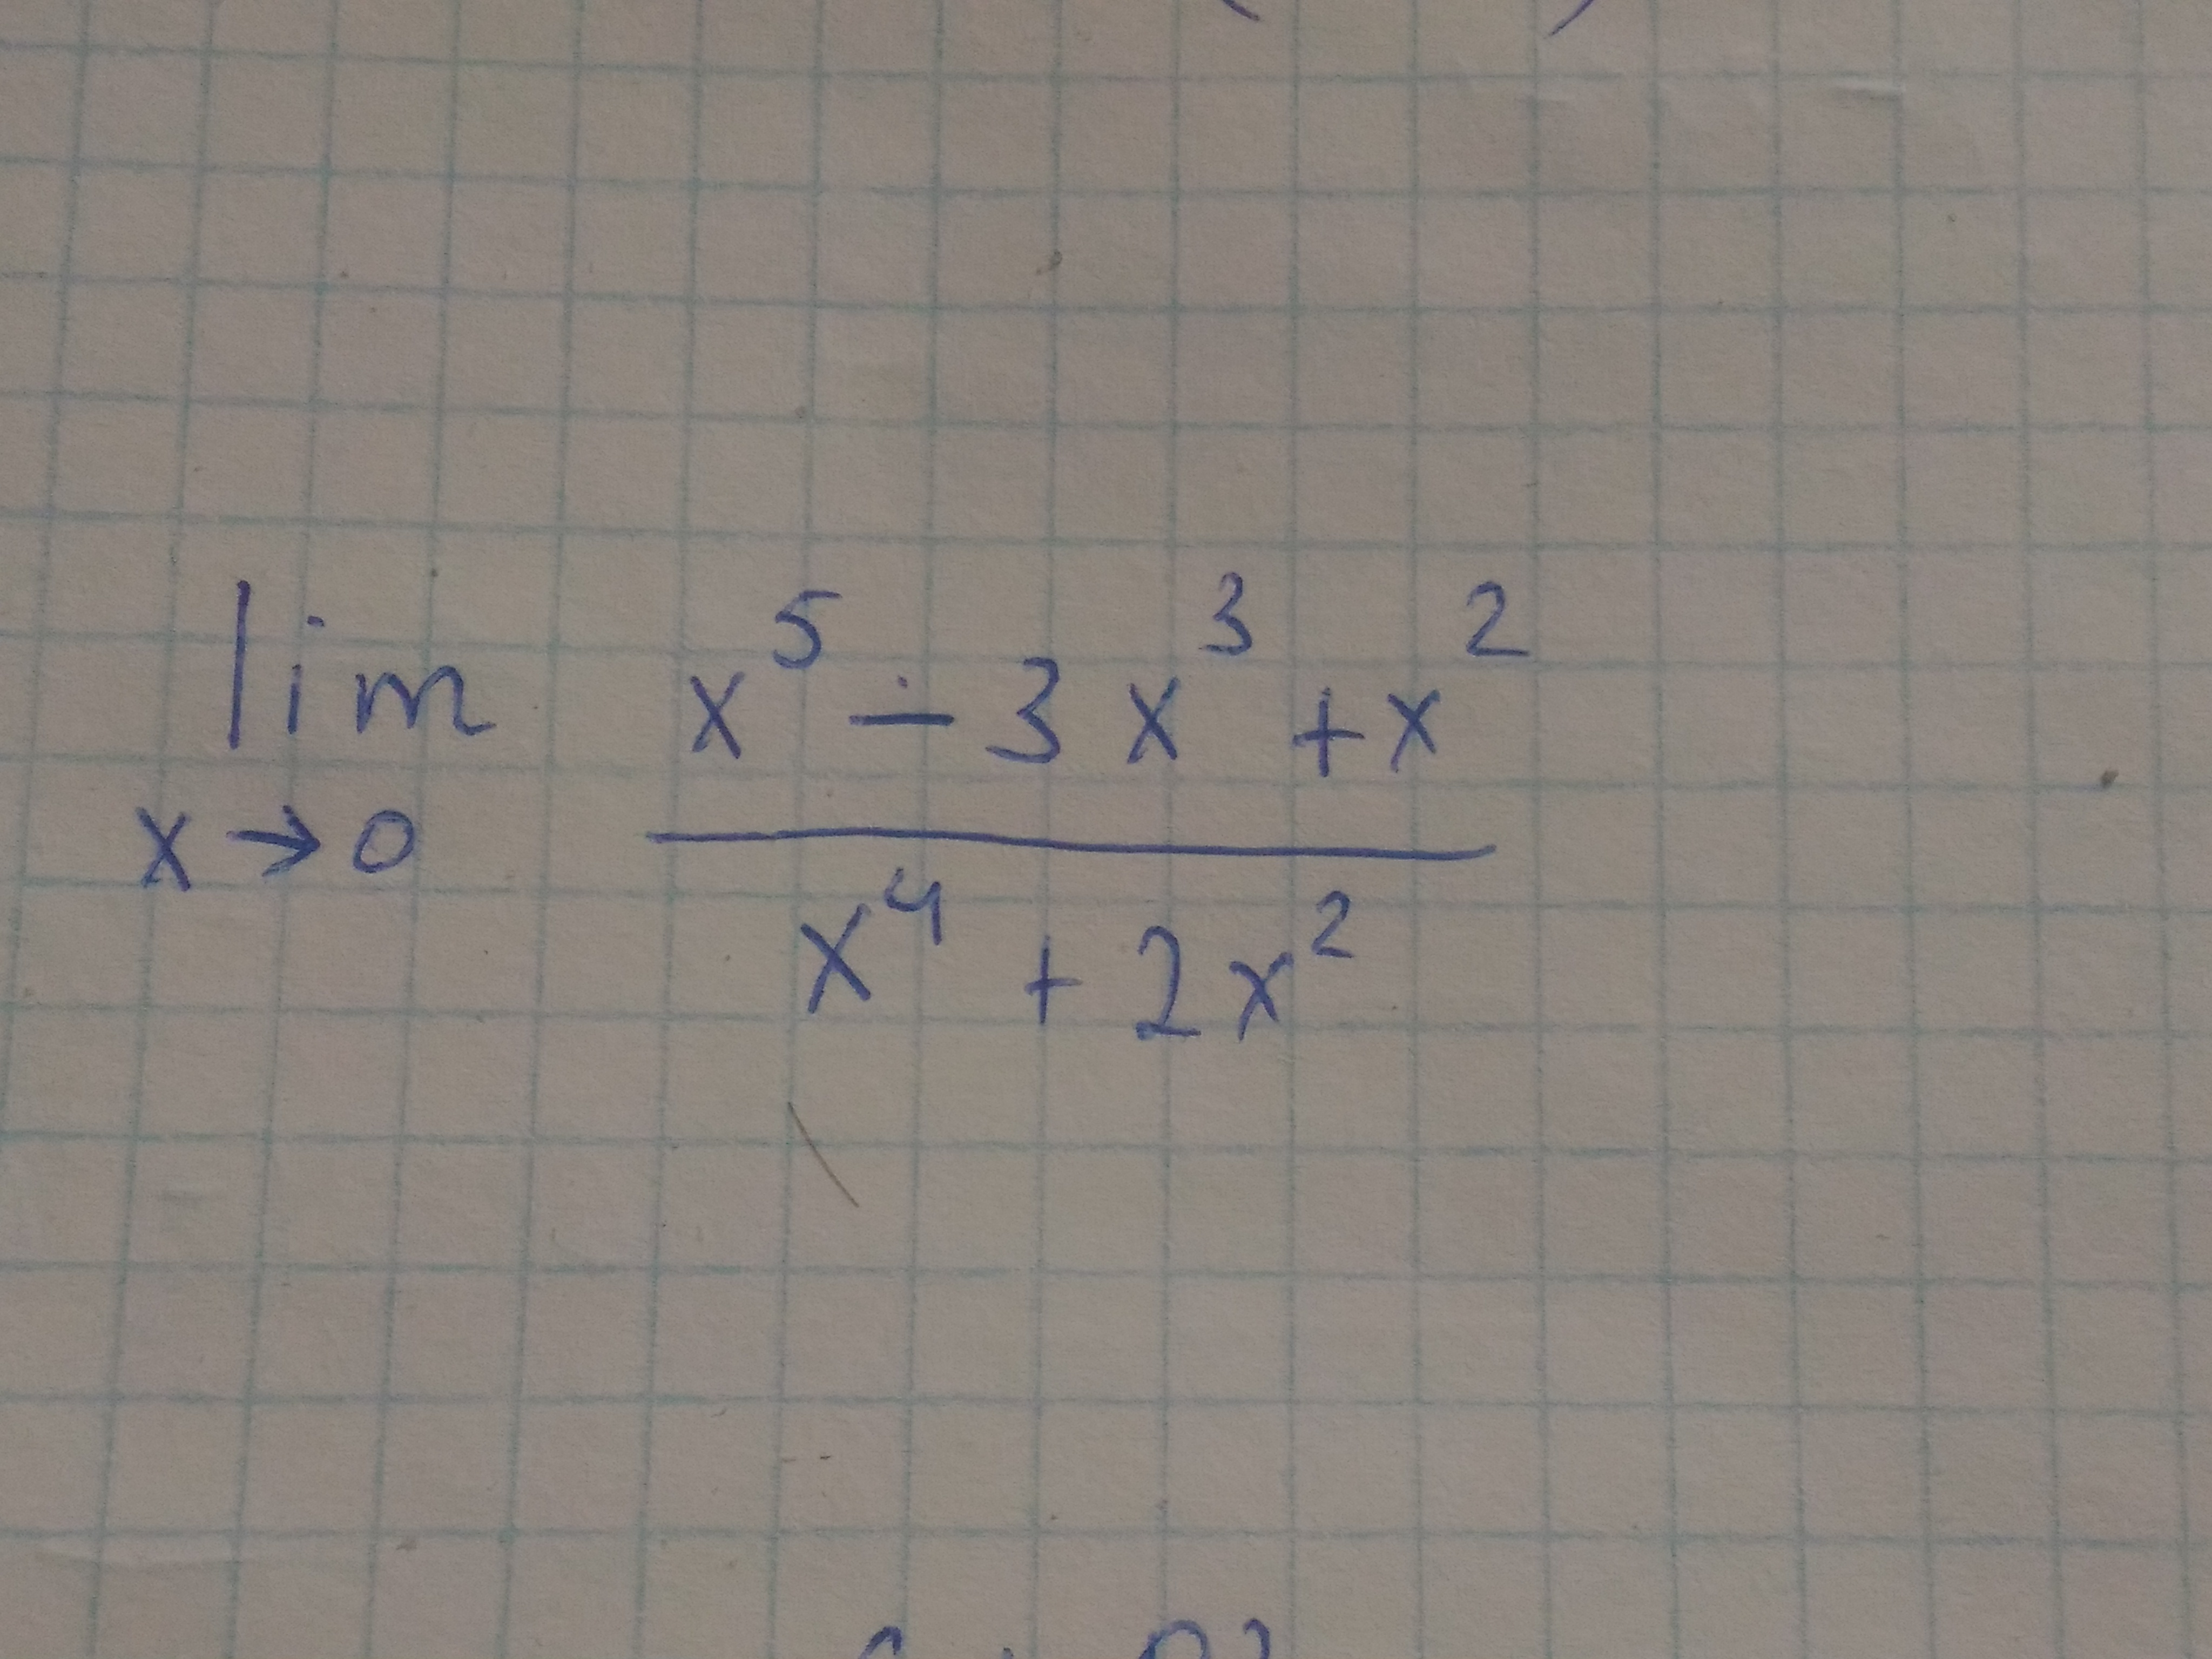 lim x→0 (x⁵ - 3x³ + x²) / (x⁴ + 2x²)